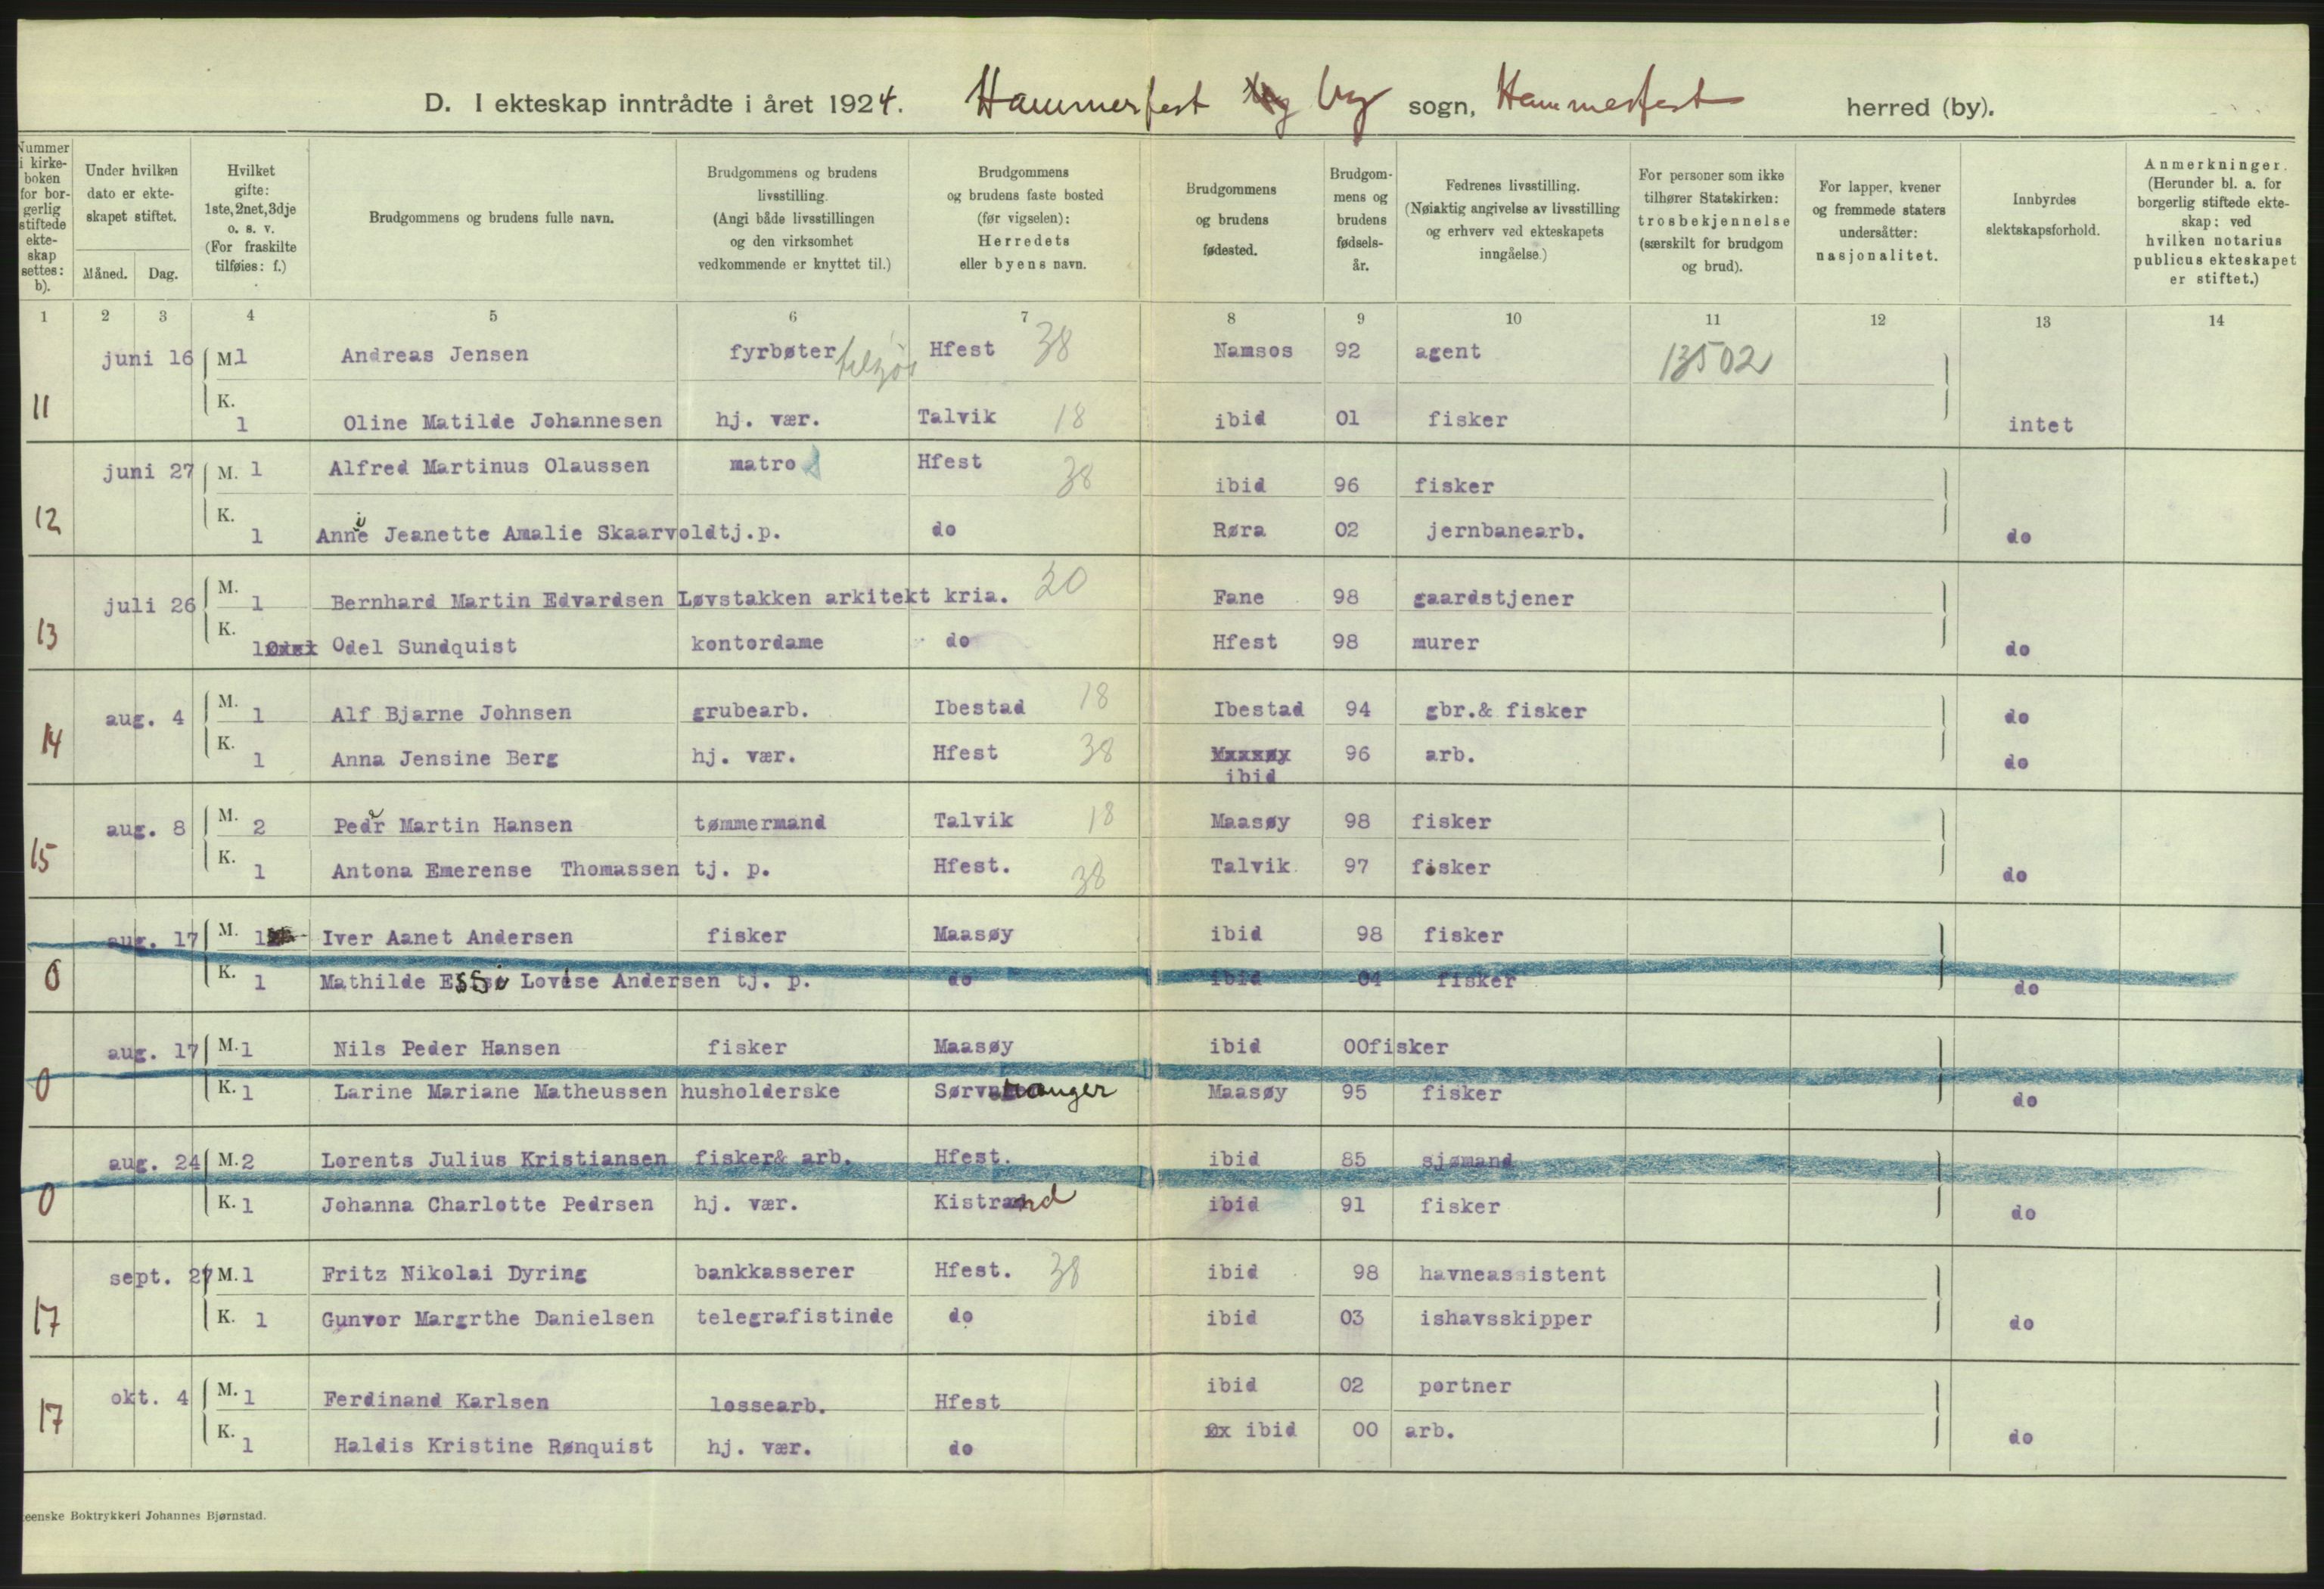 D. I ekteskap inntrådte i året 1924. Hammerfest by sogn, Hammerfest herred (by).
Nummer i kirkeboken for borgerlig stiftede ekteskap settes: b).
Under hvilken dato er ekteskapet stiftet.
Måned. Dag.
Hvilket gifte: 1ste, 2net, 3dje o. s. v. (For fraskilte tilføies: f.)
Brudgommens og brudens fulle navn.
Brudgommens og brudens livsstilling. (Angi både livsstillingen og den virksomhet vedkommende er knyttet til.)
Brudgommens og brudens faste bosted (før vigselen): Herredets eller byens navn.
Brudgommens og brudens fødested.
Brudgommens og brudens fødselsår.
Fedrenes livsstilling. (Nøiaktig angivelse av livsstilling og erhverv ved ekteskapets inngåelse.)
For personer som ikke tilhører Statskirken: trosbekjennelse (særskilt for brudgom og brud).
For lapper, kvener og fremmede staters undersåtter: nasjonalitet.
Innbyrdes slektskapsforhold.
Anmerkninger. (Herunder bl. a. for borgerlig stiftede ekteskap: ved hvilken notarius publicus ekteskapet er stiftet.)
1 2 3 4 5 6 7 8 9 10 11 12 13 14
juni 16 M. 1 Andreas Jensen fyrbøter Hfest 38 Namsos 92 agent 13502
11 K. 1 Oline Matilde Johannesen hj. vær. Talvik 18 ibid 01 fisker intet
juni 27 M. 1 Alfred Martinus Olaussen matros Hfest 38 ibid 96 fisker
12 K. 1 Annie Jeanette Amalie Skaarvold tj.p. do Røra 02 jernbanearb. do
juli 26 M. 1 Bernhard Martin Edvardsen Løvstakken arkitekt kria. 20 Fane 98 gaardstjener
13 K. 1 Odel Sundquist kontordame do Hfest 98 murer do
aug. 4 M. 1 Alf Bjarne Johnsen grubearb. Ibestad 18 Ibestad 94 gbr.& fisker do
14 K. 1 Anna Jensine Berg hj. vær. Hfest 38 ibid 96 arb. do
aug. 8 M. 2 Peder Martin Hansen tømmermand Talvik 18 Maasøy 98 fisker
15 K. 1 Antona Emerense Thomassen tj. p. Hfest. 38 Talvik 97 fisker do
aug. 17 M. 1 Iver Aanet Andersen fisker Maasøy ibid 98 fisker
0 K. 1 Mathilde Lovise Andersen tj. p. do ibid 04 fisker do
aug. 17 M. 1 Nils Peder Hansen fisker Maasøy ibid 00 fisker
0 K. 1 Larine Mariane Matheussen husholderske Sørvaranger Maasøy 95 fisker do
aug. 24 M. 2 Lorents Julius Kristiansen fisker& arb. Hfest. ibid 85 sjømand
0 K. 1 Johanna Charlotte Pedrsen hj. vær. Kistrand ibid 91 fisker do
sept. 27 M. 1 Fritz Nikolai Dyring bankkasserer Hfest. 38 ibid 98 havneassistent
17 K. 1 Gunvor Margrthe Danielsen telegrafistinde do ibid 03 ishavsskipper do
okt. 4 M. 1 Ferdinand Karlsen lossearb. Hfest ibid 02 portner
17 K. 1 Haldis Kristine Rønquist hj. vær. do ibid 00 arb. do
eenske Boktrykkeri Johannes Bjørnstad.